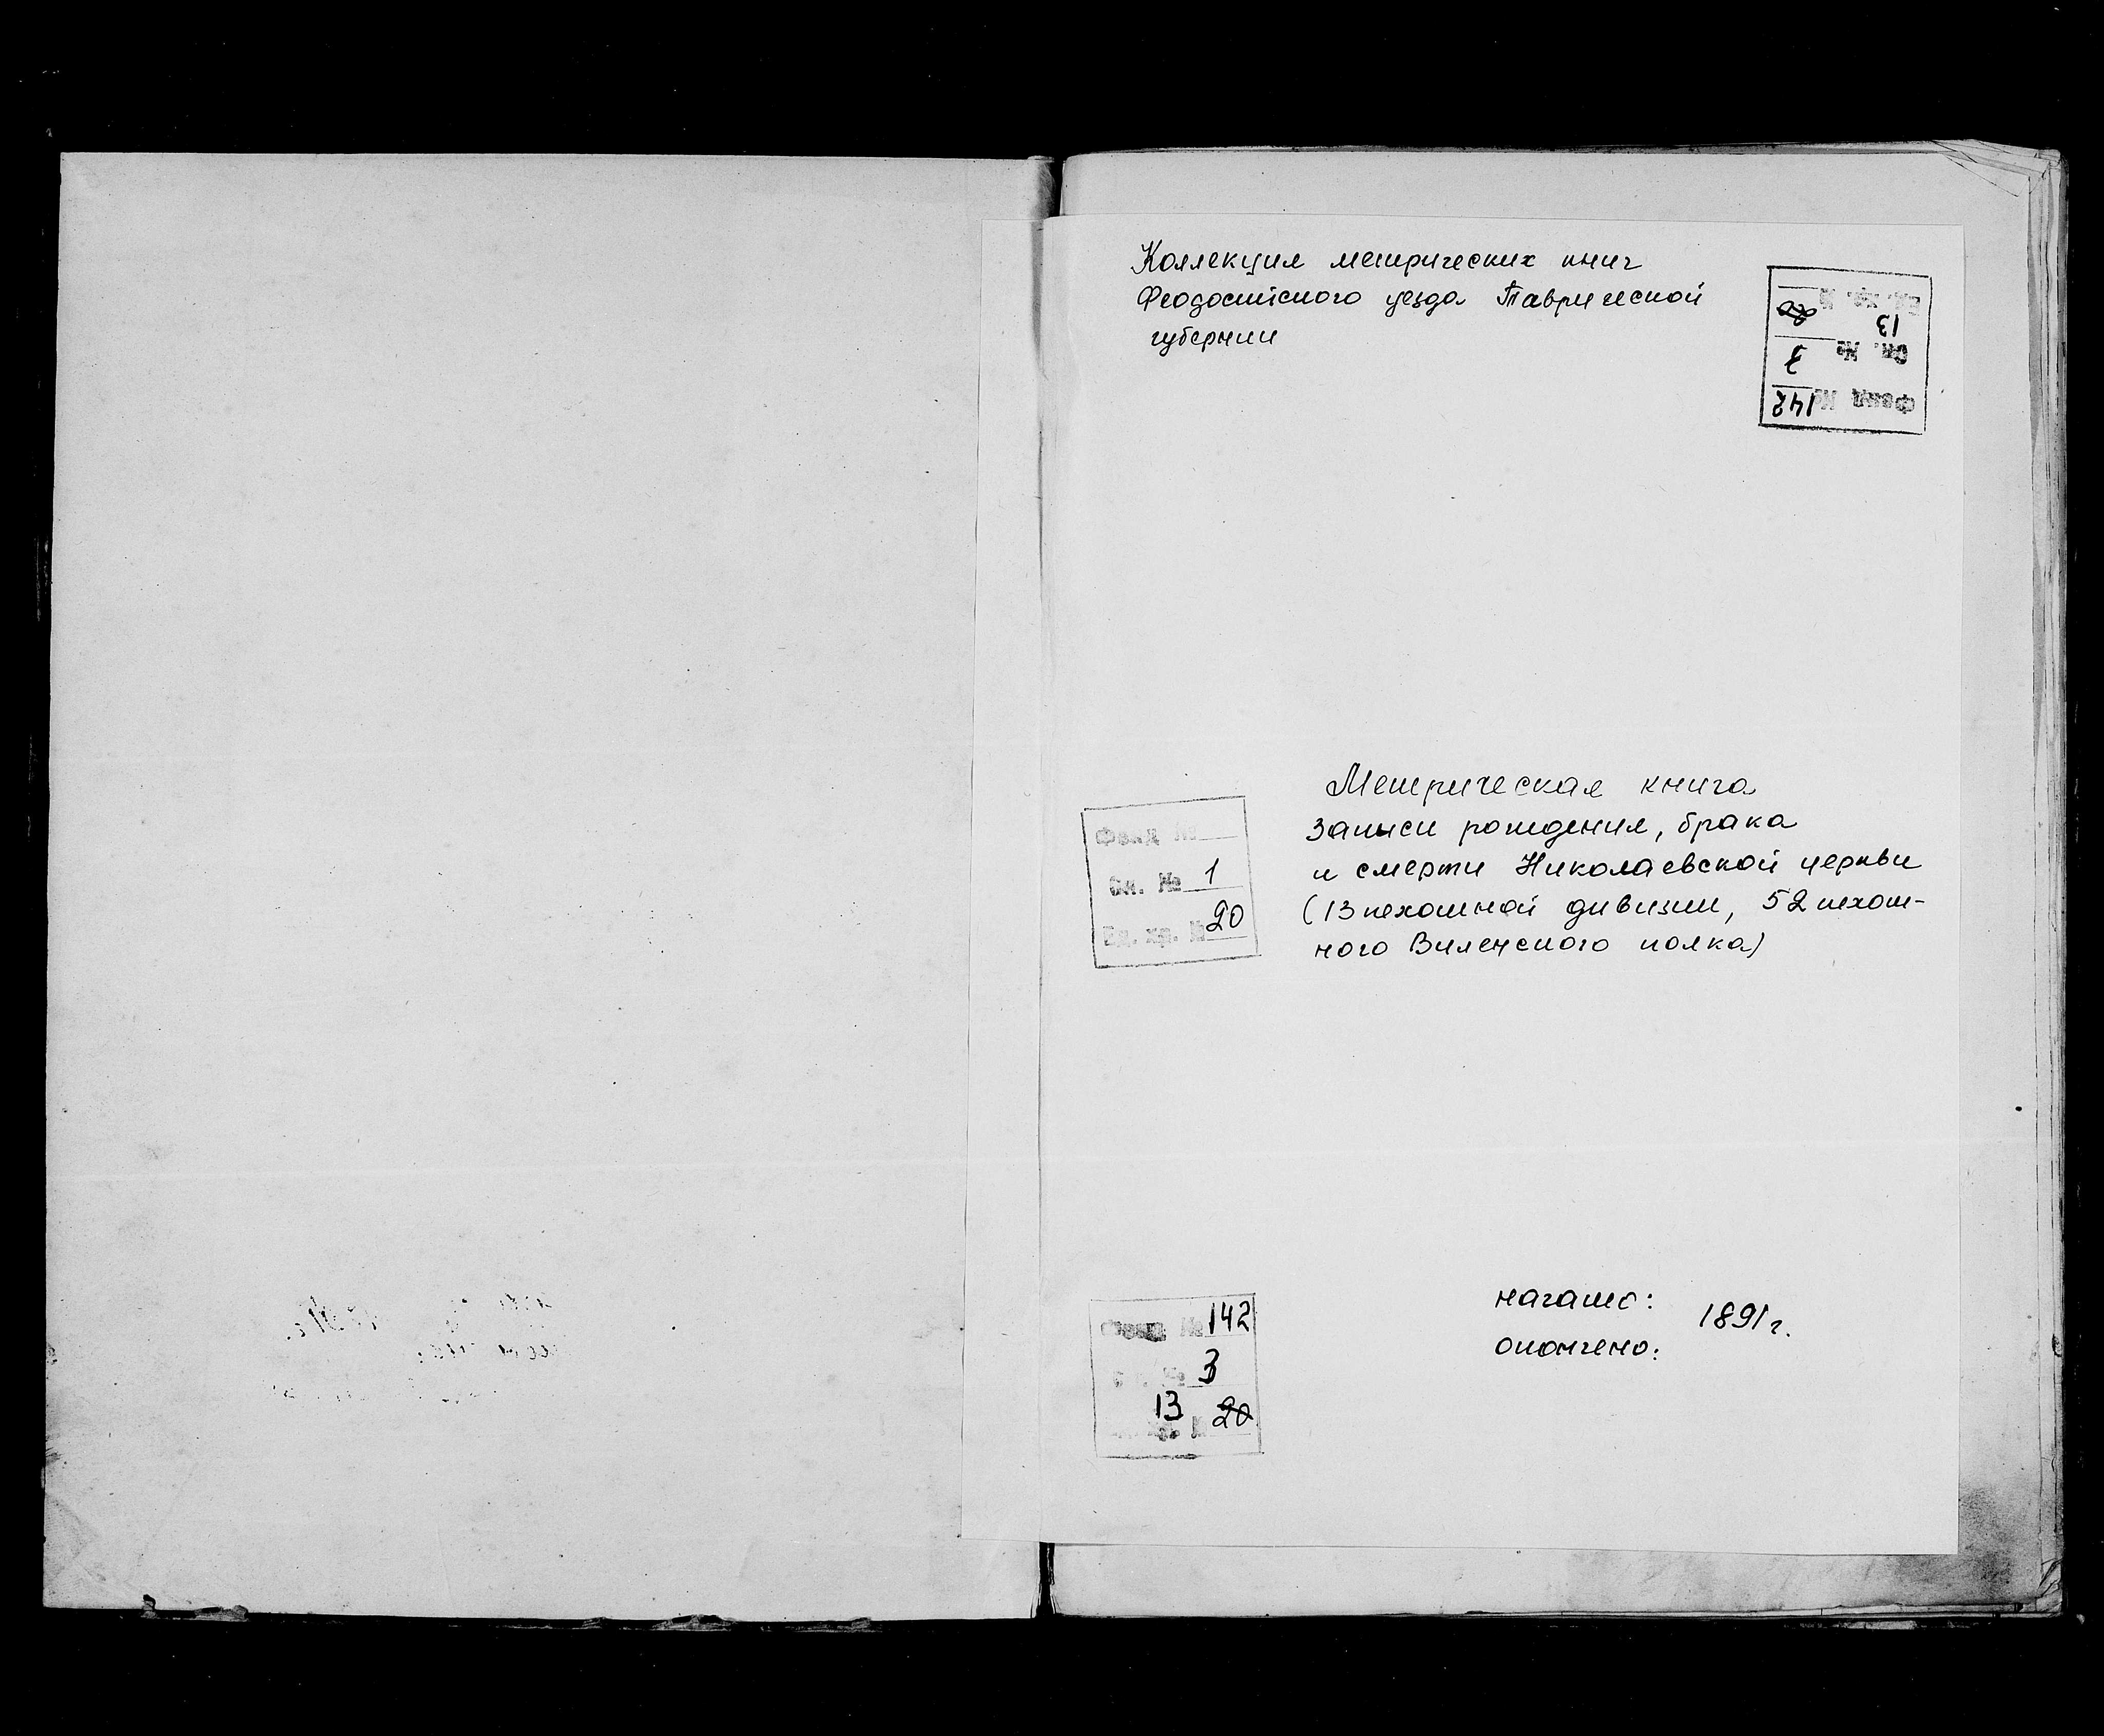 Коллекция метрических книг
Феодосийского уезда Таврической
губернии
Ед. хр. № 20
13
Оп. №
Фонд № 142
Метрическая книга
записи рождения, брака
и смерти Николаевской церкви
(13 пехотной дивизии, 52 пехот-
ного Виленского полка)
Фонд №
Оп. № 1
Ед. хр. № 20
Фонд № 142
№ 3
13 20
начато:
1891 г.
окончено: